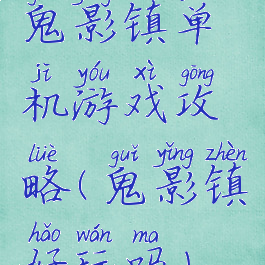 鬼影镇单
jī yóu xì gōng
机游戏攻
lüè guǐ yǐng zhèn
略(鬼影镇
hǎo wán ma
好玩吗)